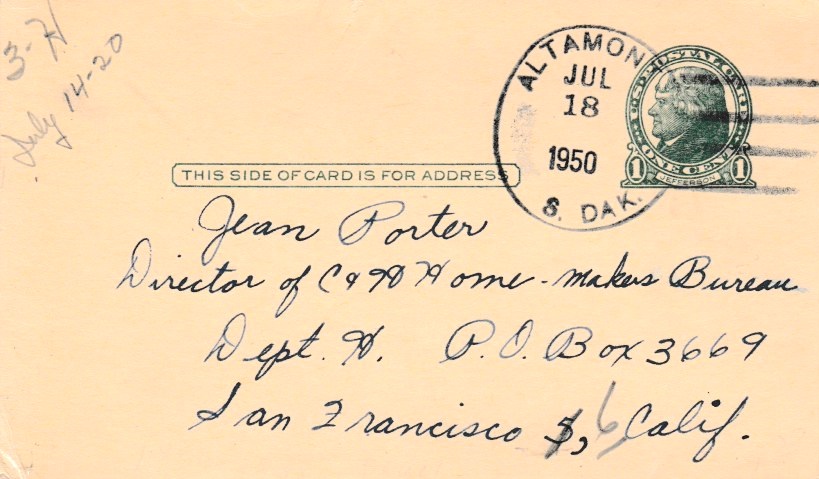 3-H
July 14-20
ALTAMONT
JUL
18
1950
S. DAK.
U·S·POSTAL CARD
ONE CENT
1 JEFFERSON 1
THIS SIDE OF CARD IS FOR ADDRESS
Jean Porter
Director of C & H Home-makers Bureau
Dept. H. P.O. Box 3669
San Francisco 5, 6 Calif.